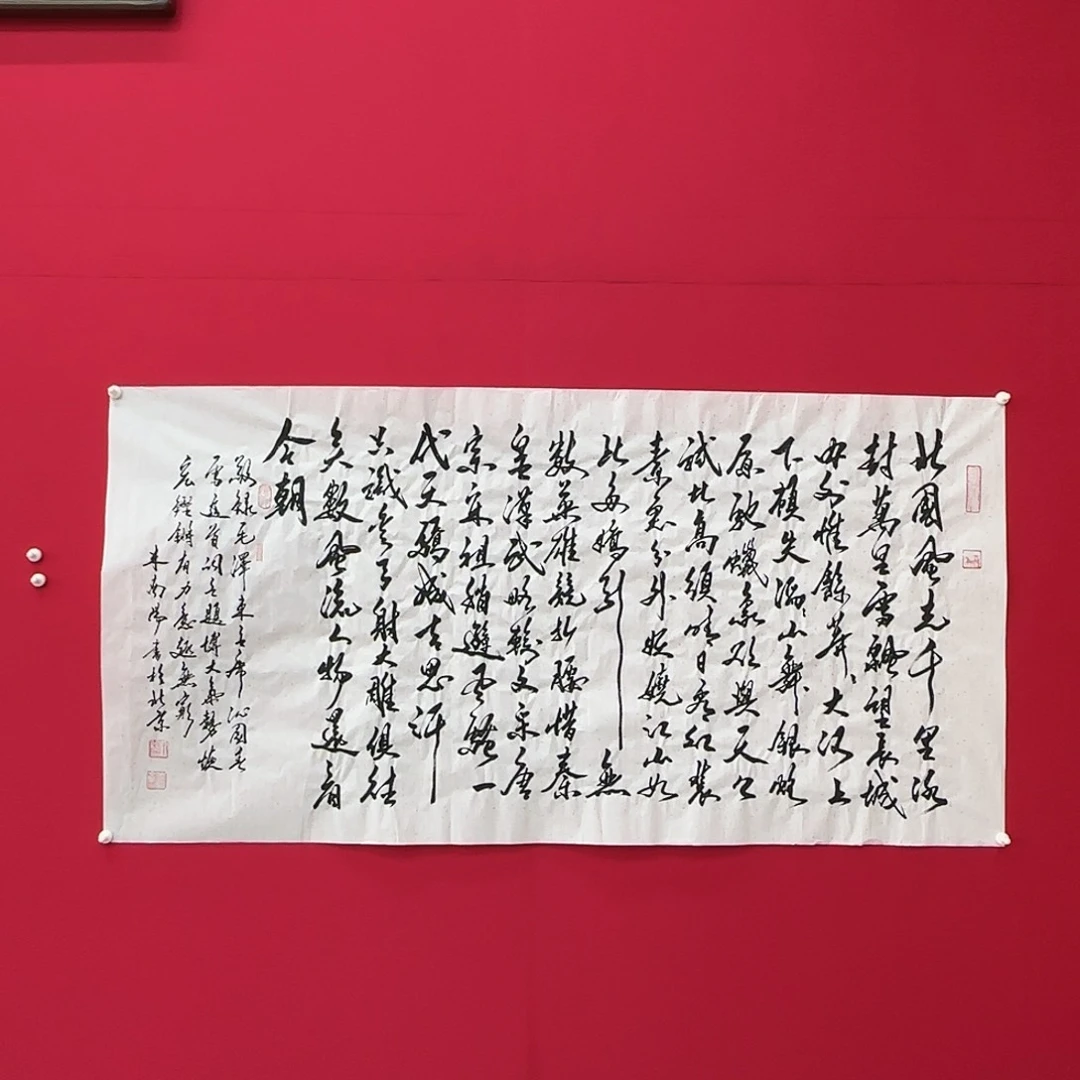 北國風光千里冰
封萬里雪飄望長城
內外惟餘莽莽大河上
下頓失滔滔山舞銀蛇
原馳蠟象欲與天公
試比高須晴日看紅裝
素裹分外妖嬈江山如
此多嬌引無
數英雄競折腰惜秦
皇漢武略輸文采唐
宗宋祖稍遜風騷一
代天驕成吉思汗
只識彎弓射大雕俱往
矣數風流人物還看
今朝
敬錄毛澤東主席沁園春
雪這首詞主題博大氣勢恢
宏鏗鏘有力意趣無窮
南陽書於北京